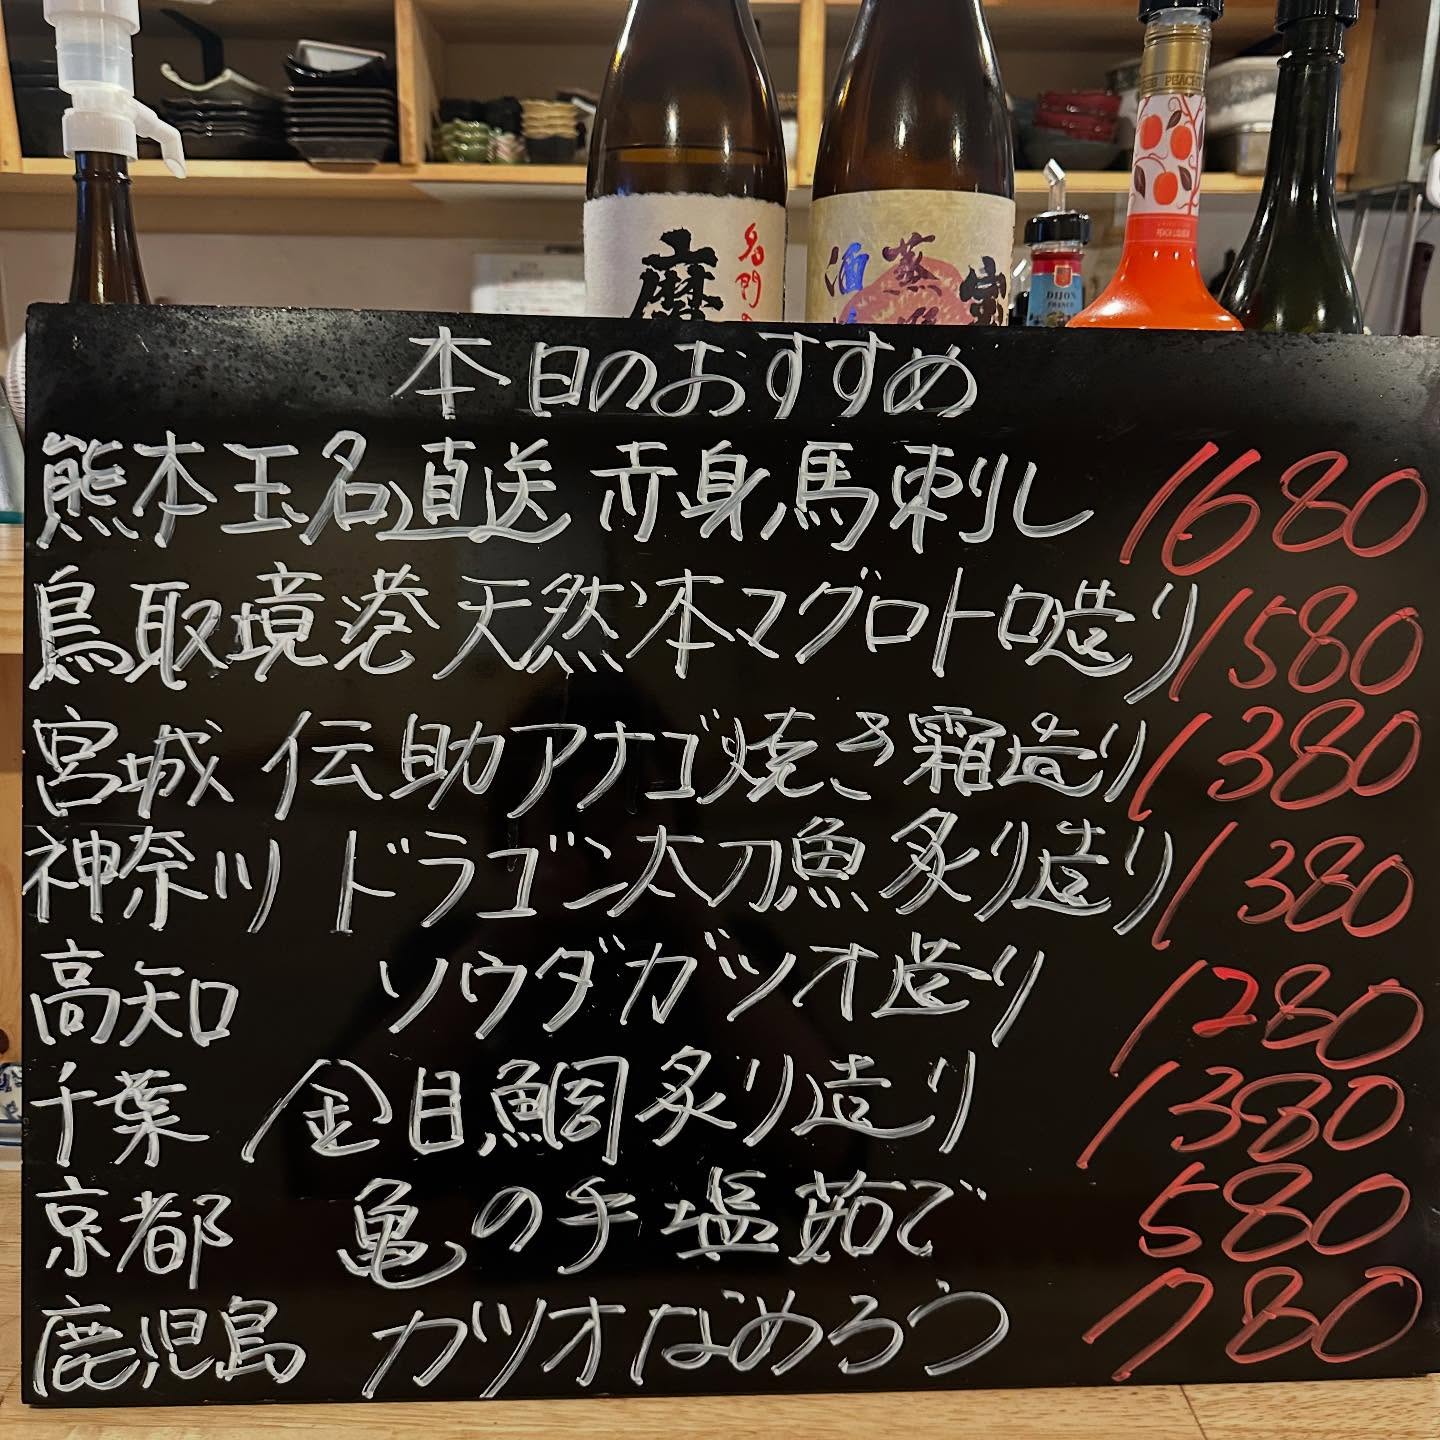 PEACH
PEACH LIQUEUR
名門の
磨
宗
蒸
酒
DIJON
FRANCE
本日のおすすめ
熊本玉名直送 赤身馬刺し 1680
鳥取境港 天然本マグロトロ造り 1580
宮城 伝助アナゴ焼き霜造り 1380
神奈川 ドラゴン太刀魚炙り造り 1380
高知 ソウダガツオ造り 1280
千葉 金目鯛炙り造り 1380
京都 亀の手塩茹で 580
鹿児島 カツオなめろう 780